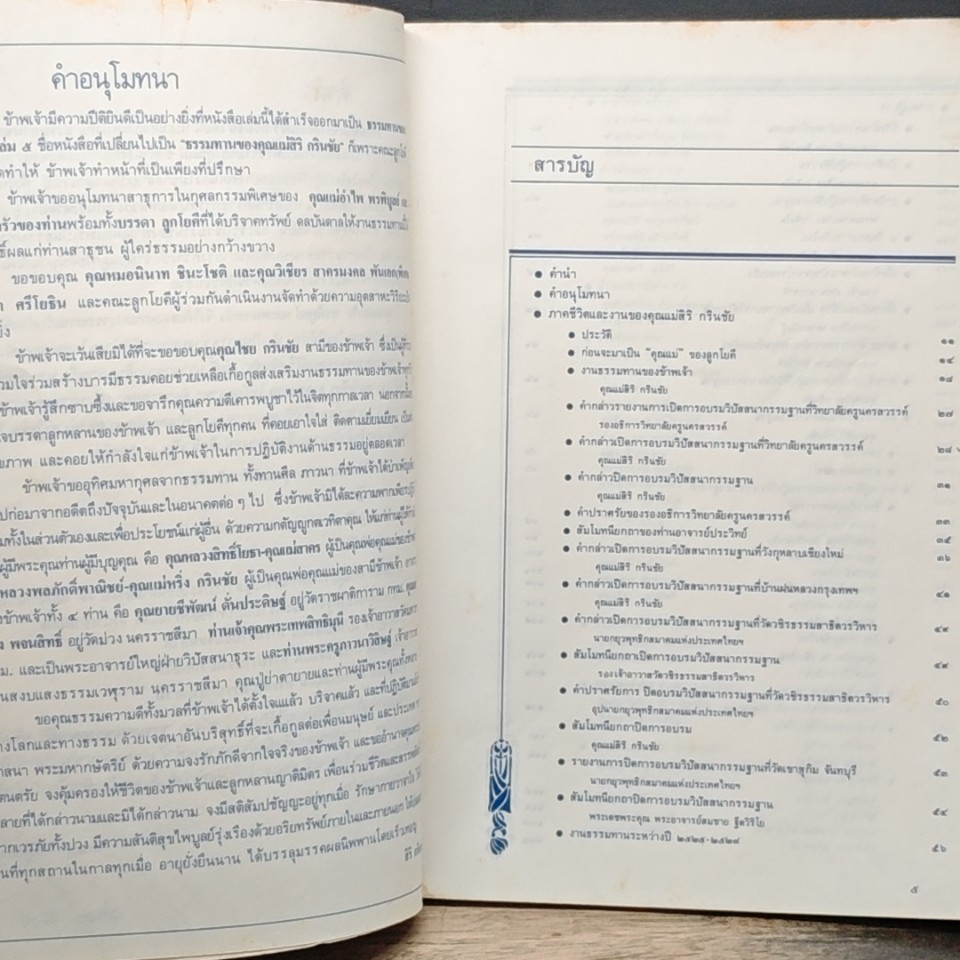 คำอนุโมทนา
ข้าพเจ้ามีความปีติยินดีเป็นอย่างยิ่งที่หนังสือเล่มนี้ได้สำเร็จออกมาเป็น ธรรมทาน
เล่ม ๕ ชื่อหนังสือที่เปลี่ยนไปเป็น "ธรรมทานของคุณแม่สิริ กรินชัย" ก็เพราะคณะลูกโยคี
ทำให้ ข้าพเจ้าทำหน้าที่เป็นเพียงที่ปรึกษา
ข้าพเจ้าขออนุโมทนาสาธุการในกุศลกรรมพิเศษของ คุณแม่อำไพ พรพิบูลย์
ของท่านพร้อมทั้งบรรดา ลูกโยคีที่ได้บริจาคทรัพย์ ดลบันดาลให้งานธรรมทานนี้
ผลแก่ท่านสาธุชน ผู้ใคร่ธรรมอย่างกว้างขวาง
ขอขอบคุณ คุณหมอนินาท ชินะโชติ และคุณวิเชียร สาครมงคล พันเอก
ศรีโยธิน และคณะลูกโยคีผู้ร่วมกันดำเนินงานจัดทำด้วยความอุตสาหะวิริยะ
ยิ่ง
ข้าพเจ้าจะเว้นเสียมิได้ที่จะขอขอบคุณคุณไชย กรินชัย สามีของข้าพเจ้า ซึ่งเป็นผู้
ร่วมใจร่วมสร้างบารมีธรรมคอยช่วยเหลือเกื้อกูลส่งเสริมงานธรรมทานของข้าพเจ้า
ข้าพเจ้ารู้สึกซาบซึ้งและขอจารึกคุณความดีเคารพบูชาไว้ในจิตทุกกาลเวลา นอกจากนั้น
บรรดาลูกหลานของข้าพเจ้า และลูกโยคีทุกคน ที่คอยเอาใจใส่ ติดตามเยี่ยมเยียน
สุขภาพ และคอยให้กำลังใจแก่ข้าพเจ้าในการปฏิบัติงานด้านธรรมอยู่ตลอดเวลา
ข้าพเจ้าขออุทิศมหากุศลจากธรรมทาน ทั้งทานศีล ภาวนา ที่ข้าพเจ้าได้บำเพ็ญ
ก่อมาจากอดีตถึงปัจจุบันและในอนาคตต่อ ๆ ไป ซึ่งข้าพเจ้ามิได้ละความพากเพียร
ทั้งในส่วนตัวเองและเพื่อประโยชน์แก่ผู้อื่น ด้วยความกตัญญูกตเวทิตาคุณ ให้แก่ท่าน
ผู้มีพระคุณท่านผู้มีบุญคุณ คือ คุณหลวงสิทธิ์โยธา-คุณแม่สาคร ผู้เป็นคุณพ่อคุณแม่ของข้าพเจ้า
หลวงพลภักดิ์พาณิชย์-คุณแม่หริ่ง กรินชัย ผู้เป็นคุณพ่อคุณแม่ของสามีข้าพเจ้า
ข้าพเจ้าทั้ง ๔ ท่าน คือ คุณยายชีพัฒน์ ดั่นประดิษฐ์ อยู่วัดราชนาติการาม กทม.
พจนสิทธิ์ อยู่วัดม่วง นครราชสีมา ท่านเจ้าคุณพระเทพสิทธิมุนี รองเจ้าอาวาส
และเป็นพระอาจารย์ใหญ่ฝ่ายวิปัสสนาธุระ และท่านพระครูภาวนาวิสิษฐ์ เจ้าอาวาส
สงบแสงธรรมเวฬุราม นครราชสีมา คุณปู่ย่าตายายและท่านผู้มีพระคุณทั้งหลาย
ขอคุณธรรมความดีทั้งมวลที่ข้าพเจ้าได้ตั้งใจแล้ว บริจาคแล้ว และที่ปฏิบัติ
ทางโลกและทางธรรม ด้วยเจตนาอันบริสุทธิ์ที่จะเกื้อกูลต่อเพื่อนมนุษย์ และประเทศ
ศาสนา พระมหากษัตริย์ ด้วยความจงรักภักดีจากใจจริงของข้าพเจ้า และขออำนาจคุณ
จงคุ้มครองให้ชีวิตของข้าพเจ้าและลูกหลานญาติมิตร เพื่อนร่วมชีวิต
ที่ได้กล่าวนามและมิได้กล่าวนาม จงมีสติสัมปชัญญะอยู่ทุกเมื่อ รักษากายวาจาใจ
เวรภัยทั้งปวง มีความสันติสุขไพบูลย์รุ่งเรืองด้วยอริยทรัพย์ภายในและภายนอก
ที่ทุกสถานในกาลทุกเมื่อ อายุยั่งยืนนาน ได้บรรลุมรรคผลนิพพานโดยเร็ว
สารบัญ
● คำนำ
● คำอนุโมทนา
● ภาคชีวิตและงานของคุณแม่สิริ กรินชัย
● ประวัติ ๑๑
● ก่อนจะมาเป็น "คุณแม่" ของลูกโยคี ๑๔
● งานธรรมทานของข้าพเจ้า ๑๘
คุณแม่สิริ กรินชัย
● คำกล่าวรายงานการเปิดการอบรมวิปัสสนากรรมฐานที่วิทยาลัยครูนครสวรรค์ ๒๗
รองอธิการวิทยาลัยครูนครสวรรค์
● คำกล่าวเปิดการอบรมวิปัสสนากรรมฐานที่วิทยาลัยครูนครสวรรค์ ๒๘
คุณแม่สิริ กรินชัย
● คำกล่าวปิดการอบรมวิปัสสนากรรมฐาน ๓๑
คุณแม่สิริ กรินชัย
● คำปราศรัยของรองอธิการวิทยาลัยครูนครสวรรค์ ๓๓
● สัมโมทนียกถาของท่านอาจารย์ประวิทย์ ๓๕
● คำกล่าวเปิดการอบรมวิปัสสนากรรมฐานที่วังกุหลาบเชียงใหม่ ๓๖
คุณแม่สิริ กรินชัย
● คำกล่าวเปิดการอบรมวิปัสสนากรรมฐานที่บ้านฝนหลวงกรุงเทพฯ ๔๑
คุณแม่สิริ กรินชัย
● คำกล่าวเปิดการอบรมวิปัสสนากรรมฐานที่วัดวชิรธรรมสาธิตวรวิหาร ๔๙
นายกยุวพุทธิกสมาคมแห่งประเทศไทยฯ
● สัมโมทนียกถาเปิดการอบรมวิปัสสนากรรมฐาน ๔๙
รองเจ้าอาวาสวัดวชิรธรรมสาธิตวรวิหาร
● คำปราศรัยการ ปิดอบรมวิปัสสนากรรมฐานที่วัดวชิรธรรมสาธิตวรวิหาร ๕๐
อุปนายกยุวพุทธิกสมาคมแห่งประเทศไทยฯ
● สัมโมทนียกถาปิดการอบรม ๕๒
คุณแม่สิริ กรินชัย
● รายงานการปิดการอบรมวิปัสสนากรรมฐานที่วัดเขาสุกิม จันทบุรี ๕๓
นายกยุวพุทธิกสมาคมแห่งประเทศไทยฯ
● สัมโมทนียกถาปิดการอบรมวิปัสสนากรรมฐาน ๕๔
พระเดชพระคุณ พระอาจารย์สมชาย ฐิตวิริโย
● งานธรรมทานระหว่างปี ๒๕๒๕-๒๕๒๘ ๕๖
๕